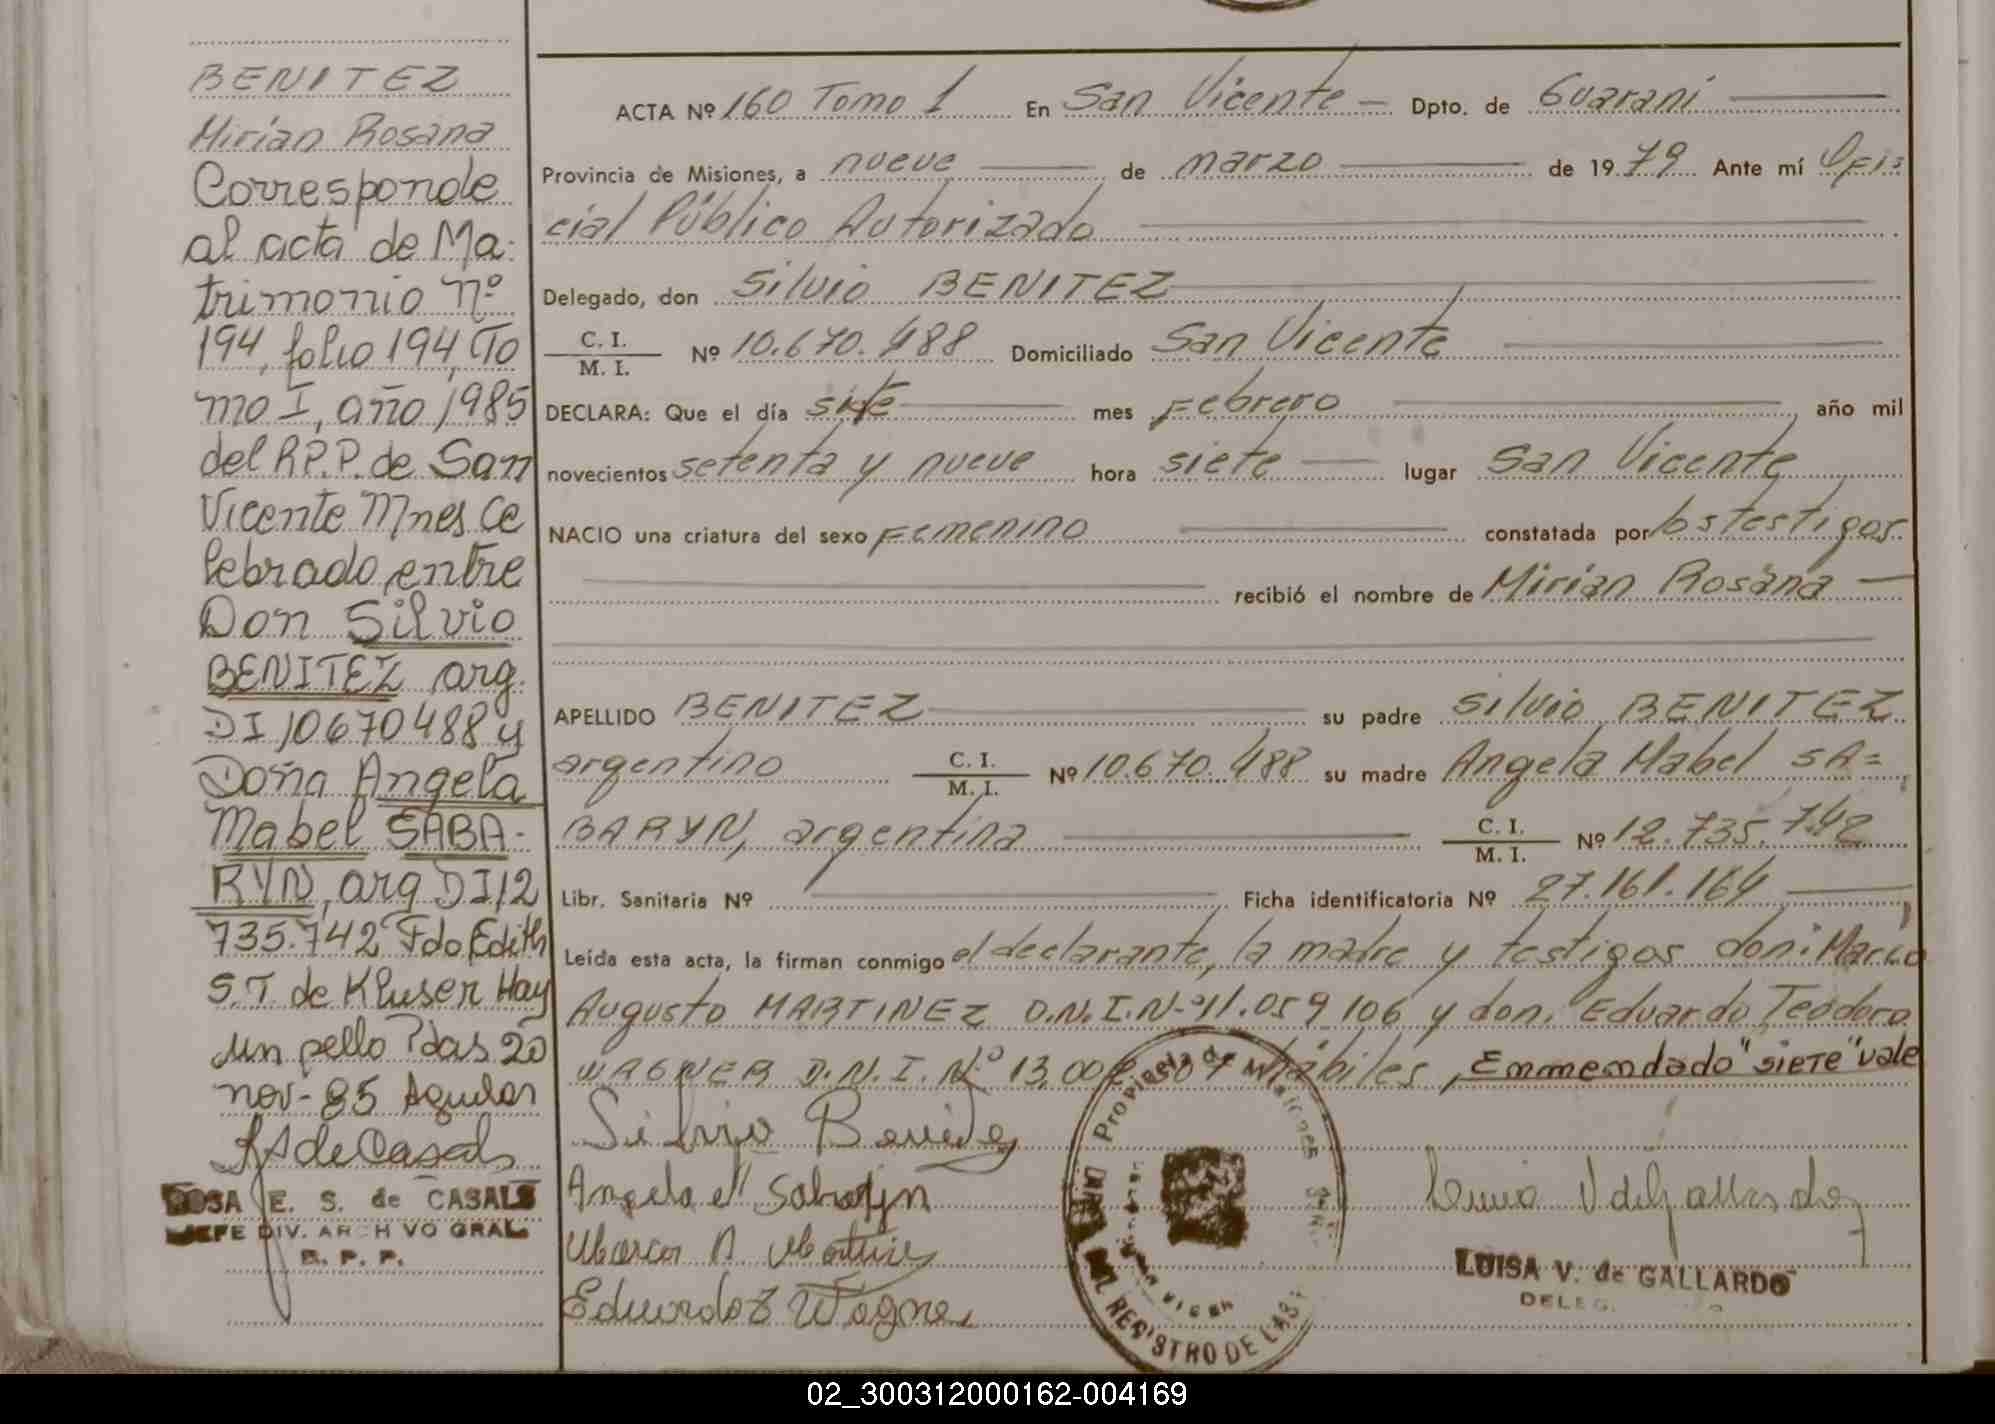 BENITEZ
Mirian Rosana
Corresponde
al acta de Ma-
trimonio Nº
194, folio 194, To
mo I, año 1985
del R.P.P. de San
Vicente Mnes Ce
lebrado entre
Don Silvio
BENITEZ arg.
DI 10670488 y
Doña Angela
Mabel SABA-
RYN, arg DI 12
735.742 Fdo Edith
S.T. de Kluser Hay
un sello Pdas 20
nov-85 Aguilar
RS de Casals
ROSA E. S. de CASALS
JEFE DIV. ARCHIVO GRAL
R. P. P.
ACTA Nº 160 Tomo 1 En San Vicente — Dpto. de Guaraní
Provincia de Misiones, a nueve de marzo de 1979 Ante mí Ofi=
cial Público Autorizado
Delegado, don Silvio BENITEZ
C. I.
M. I. Nº 10.670.488 Domiciliado San Vicente
DECLARA: Que el día siete mes Febrero año mil
novecientos setenta y nueve hora siete lugar San Vicente
NACIO una criatura del sexo Femenino constatada por los testigos
recibió el nombre de Mirian Rosana
APELLIDO BENITEZ su padre Silvio BENITEZ
argentino C. I.
M. I. Nº 10.670.488 su madre Angela Mabel SA=
BARYN, argentina C. I.
M. I. Nº 12.735.742
Libr. Sanitaria Nº Ficha identificatoria Nº 27.161.164
Leída esta acta, la firman conmigo el declarante, la madre y testigos don: Marco
Augusto MARTINEZ D.N.I.Nº 11.059.106 y don, Eduardo Teodoro
WAGNER D.N.I.Nº 13.00 hábiles, Enmendado "siete" vale
Silvio Benitez
Angela M Sabaryn
Marco A Martinez
Eduardo T Wagner
Provincia de Misiones
REGISTRO DE LAS
LUISA V. de GALLARDO
DELEG.
02_300312000162-004169